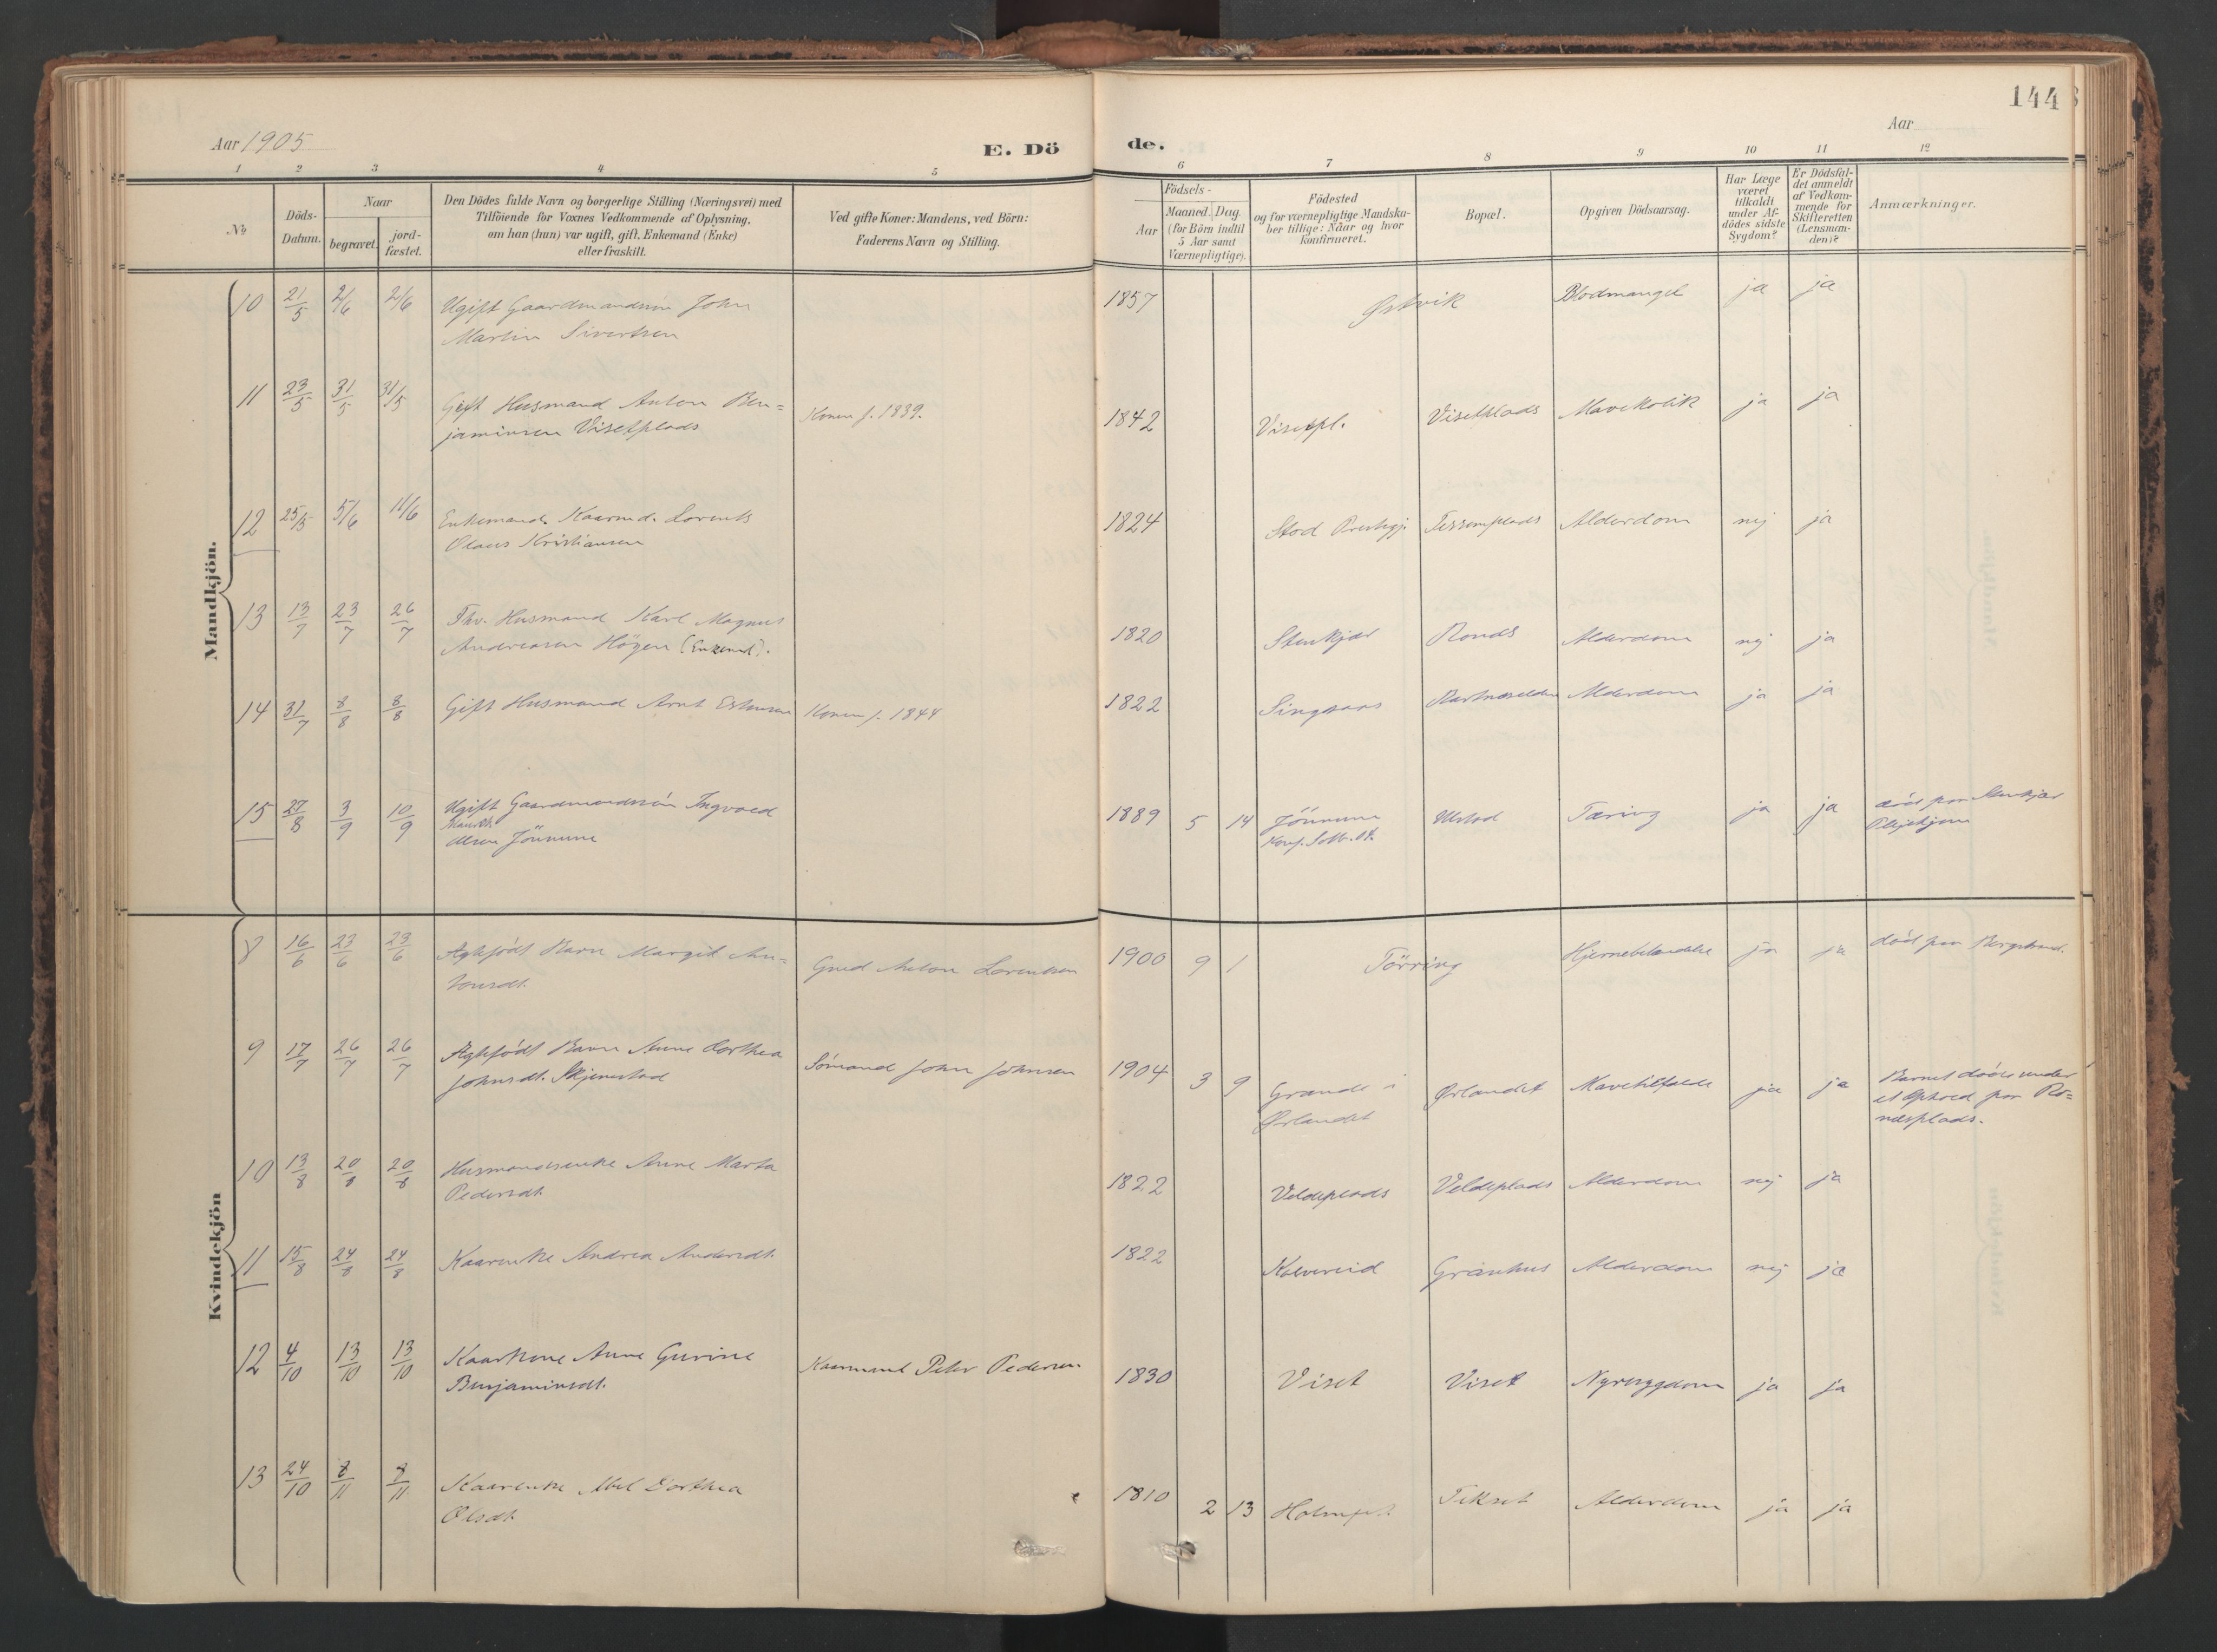 144
Aar 1905
E. Dö
de.
Aar
1 2 3 4 5 6 7 8 9 10 11 12
№
Döds-
Datum.
Naar
begravet.
jord-
fæstet.
Den Dödes fulde Navn og borgerlige Stilling (Næringsvei) med
Tilföiende for Voxnes Vedkommende af Oplysning,
om han (hun) var ugift, gift, Enkemand (Enke)
eller fraskilt.
Ved gifte Koner: Mandens, ved Börn:
Faderens Navn og Stilling.
Födsels-
Aar
Maaned. Dag.
(for Börn indtil
5 Aar samt
Værnepligtige).
Födested
og for værnepligtige Mandska-
ber tillige: Naar og hvor
konfirmeret.
Bopæl.
Opgiven Dödsaarsag.
Har Læge
været
tilkaldt
under Af-
dödes sidste
Sygdom?
Er Dödsfal-
det anmeldt
af Vedkom-
mende for
Skifteretten
(Lensman-
den)?
Anmærkninger.
Mandkjön.
10 21/5 2/6 2/6 Ugift Gaardmandssön John
Martin Sivertsen
1857 Østvik Blodmangel ja ja
11 23/5 31/5 31/5 Gift Husmand Anton Ben=
jaminsen Visetplads
Konen f. 1839.
1842 Visetpl. Visetplads Mavekolik ja ja
12 25/5 5/6 11/6 Enkemand. Kaarmd. Lorents
Olaus Kristiansen
1824 Stod Prestegj. Tessemplads Alderdom nej ja
13 13/7 23/7 26/7 Fhv. Husmand Karl Magnus
Andreasen Högen (Enkemd).
1820 Stenkjær Alderdom nej ja
14 31/7 8/8 8/8 Gift Husmand Arnt Konen f. 1844
1822 Singsaas Alderdom ja ja
15 27/8 3/9 10/9 Ugift Gaardmandssön Ingvald
Olsen Jönnum
1889 5 14 Jönnum Tæring ja ja död paa Stenkjær
Plejehjem
Kvindekjön
8 16/6 23/6 23/6 Ægtefödt Barn Margit An=
tonsdt.
Gmd Anton Lorentsen
1900 9 1 Törring Hjernebetændelse ja ja död paa
9 17/7 26/7 26/7 Ægtefödt Barn Anne Dorthea
Johnsdt. Skjerestad
Sömand John Johnsen
1904 3 9 Grande i
Ørlandet
Ørlandet Mavetilfælde ja ja Barnet döde under
et Ophold paa Rö=
nesplads.
10 13/8 20/8 20/8 Husmandsenke Anne Marta
Pedersdt.
1822 Veldeplads Veldeplads Alderdom nej ja
11 15/8 24/8 24/8 Kaarenke Andrea Andersdt.
1822 Kolvereid Granhus Alderdom nej ja
12 4/10 13/10 13/10 Kaarkone Anne Gurine
Benjaminsdt.
Kaarmand Peter Pedersen
1830 Viset Viset Nyresygdom ja ja
13 24/10 8/11 8/11 Kaarenke Abel Dorthea
Olsdt.
1810 2 13 Tekset Alderdom ja ja